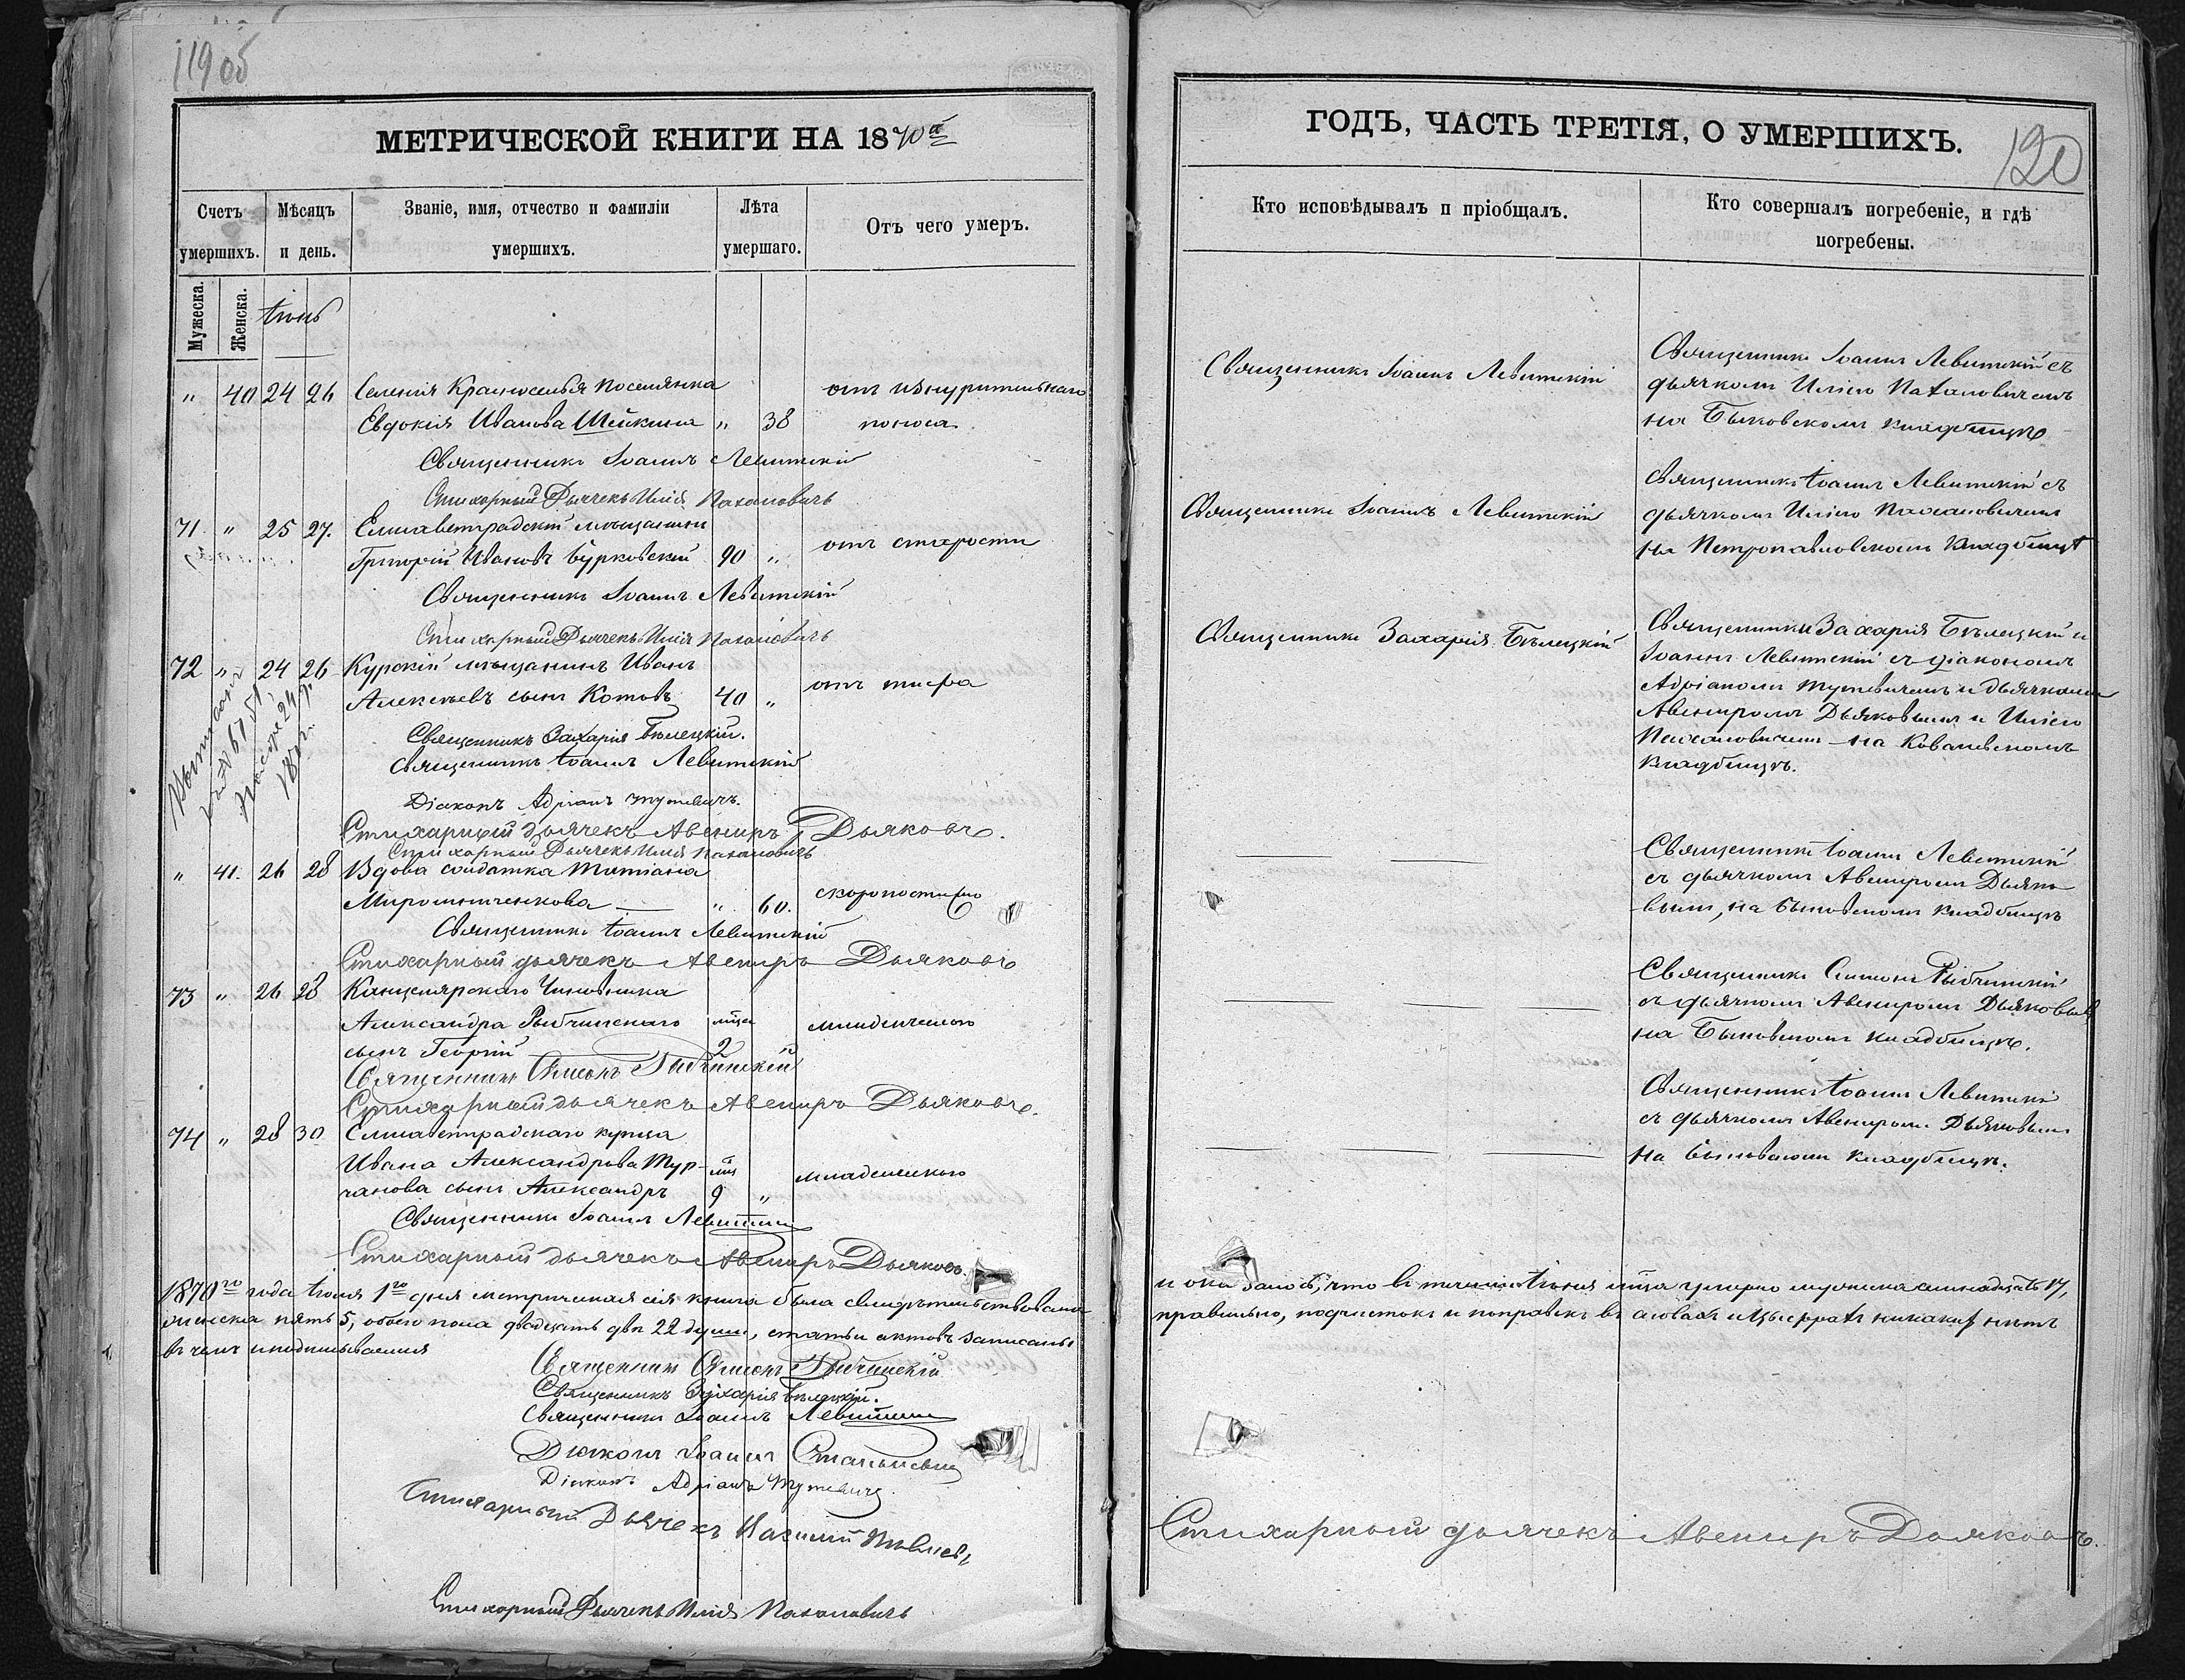 119 об
МЕТРИЧЕСКОЙ КНИГИ НА 1870й
Счетъ умершихъ.
Мѣсяцъ и день.
Званіе, имя, отчество и фамиліи умершихъ.
Лѣта умершаго.
Отъ чего умеръ.
Мужеска.
Женска.
Іюнь
" 40 24 26 Селенія поселянка
Евдокія Иванова Шейкина " 38
отъ изнурительнаго
поноса
Священникъ Іоаннъ Левитскій
Стихарный Дьячекъ Илія Пахаловичъ
71 " 25 27. Елисаветградскій мѣщанинъ
Григорій Ивановъ Бурковскій 90 "
отъ старости
Священникъ Іоаннъ Левитскій
Стихарный Дьячекъ Илія Пахаловичъ
72 " 24 26 Курскій мѣщанинъ Иванъ
Алексѣевъ сынъ Котовъ 40 "
отъ тифа
Священникъ Захарія Бѣлецкій.
Священникъ Іоаннъ Левитскій
Діаконъ Адріанъ
Стихарный дьячекъ Авениръ Дьяковъ.
Стихарный Дьячекъ Илія Пахаловичъ
" 41. 26 28 Вдова солдатка Татіана
Мирошниченкова " 60.
скоропостижно
Священникъ Іоаннъ Левитскій
Стихарный дьячекъ Авениръ Дьяковъ
73 " 26 28 Канцелярскаго Чиновника
Александра Рыбчинскаго мца
сынъ Георгій 2
младенческою
Священникъ Симеонъ Рыбчинскій
Стихарный дьячекъ Авениръ Дьяковъ.
74 " 28 30 Елисаветградскаго купца
Ивана Александрова Тур-
чанова сынъ Александръ 9 "
младенческою
Священникъ Іоаннъ Левитскій
Стихарный дьячекъ Авениръ Дьяковъ.
1870го года Іюля 1го дня метрическая сія книга была свидѣтельствована
женска пять 5, обоего пола двадцать два 22 души, статьи актовъ записаны
въ чемъ и подписываемся
Священникъ Симеонъ Рыбчинскій
Священникъ Захарія Бѣлецкій.
Священникъ Іоаннъ Левитскій
Діаконъ Іоаннъ
Діаконъ Адріанъ
Стихарный Дьячекъ
Стихарный Дьячекъ Илія Пахаловичъ
ГОДЪ, ЧАСТЬ ТРЕТІЯ, О УМЕРШИХЪ.
120
Кто исповѣдывалъ и пріобщалъ.
Кто совершалъ погребеніе, и гдѣ погребены.
Священникъ Іоаннъ Левитскій
Священникъ Іоаннъ Левитскій съ
дьячкомъ Иліею Пахаловичемъ
на Быковскомъ кладбищѣ
Священникъ Іоаннъ Левитскій
Священникъ Іоаннъ Левитскій съ
дьячкомъ Иліею Пахаловичемъ
на Петропавловскомъ кладбищѣ
Священникъ Захарія Бѣлецкій
Священники Захарія Бѣлецкій и
Іоаннъ Левитскій съ діакономъ
Адріаномъ и дьячками
Авениромъ Дьяковымъ и Иліею
Пахаловичемъ на Ковалевскомъ
кладбищѣ.
Священникъ Іоаннъ Левитскій
съ дьячкомъ Авениромъ Дьяко
вымъ, на Быковскомъ кладбищѣ
Священникъ Симеонъ Рыбчинскій
съ дьячкомъ Авениромъ Дьяковымъ
на Быковскомъ кладбищѣ.
Священникъ Іоаннъ Левитскій
съ дьячкомъ Авениромъ Дьяковымъ
на Быковскомъ кладбищѣ.
что въ теченіи Іюня мца умерло мужеска семнадцать 17,
правильно, подчистокъ и поправокъ въ словахъ и цыфрахъ никакихъ нѣтъ
Стихарный дьячекъ Авениръ Дьяковъ.